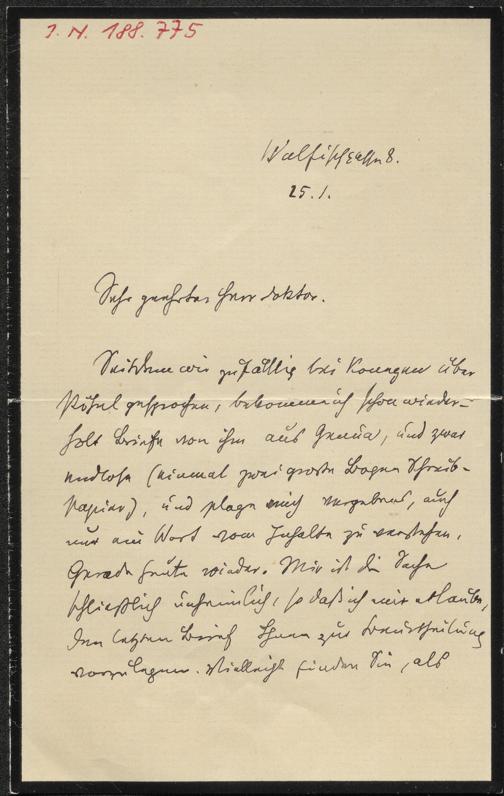 I. N. 188.775
Walfischgasse 8.
25. 1.
Sehr geehrter Herr Doktor.
Seitdem wir zufällig bei Konegen über
gesprochen, bekomme ich schon wieder-
holt Briefe von ihm aus Genua, und zwar
endlose (einmal zwei große Bogen Schreib-
papier), und plage mich vergebens, auch
nur ein Wort vom Inhalte zu verstehen.
Gerade heute wieder. Mir ist die Sache
schließlich unheimlich, so daß ich mir erlaube,
den letzten Brief Ihnen zur Beurtheilung
vorzulegen. Vielleicht finden Sie, als